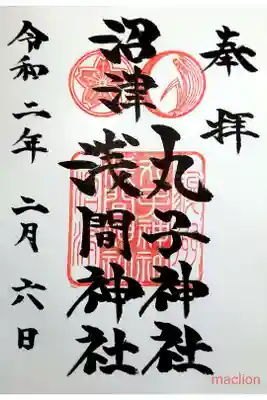 奉拝
沼津
丸子神社
浅間神社
令和二年 二月 六日
maclion